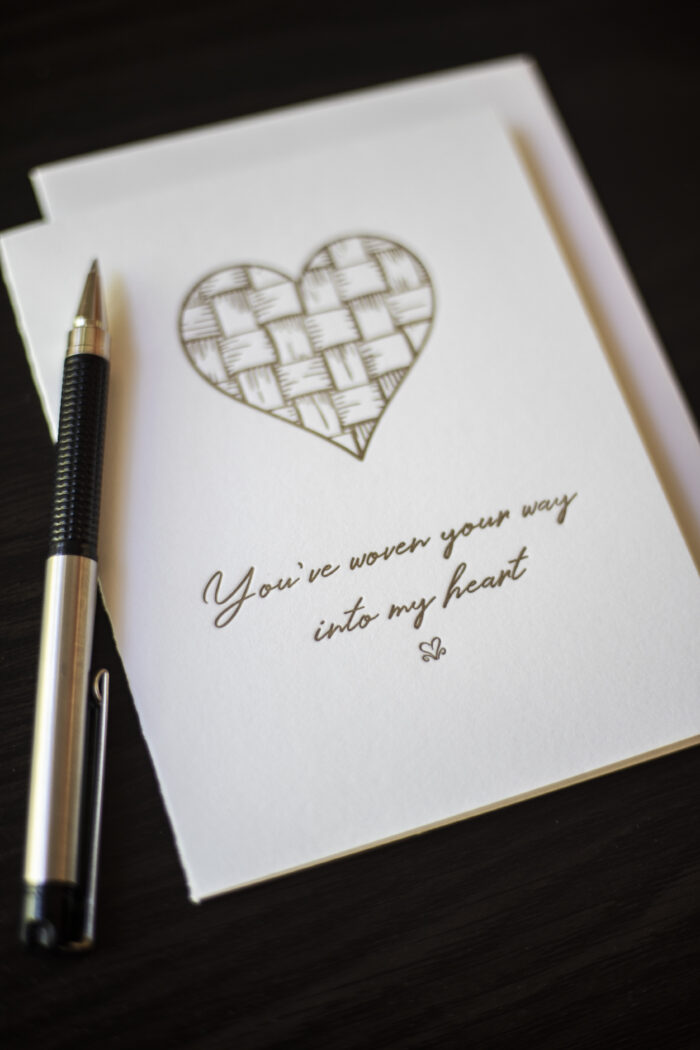 You've woven your way
into my heart